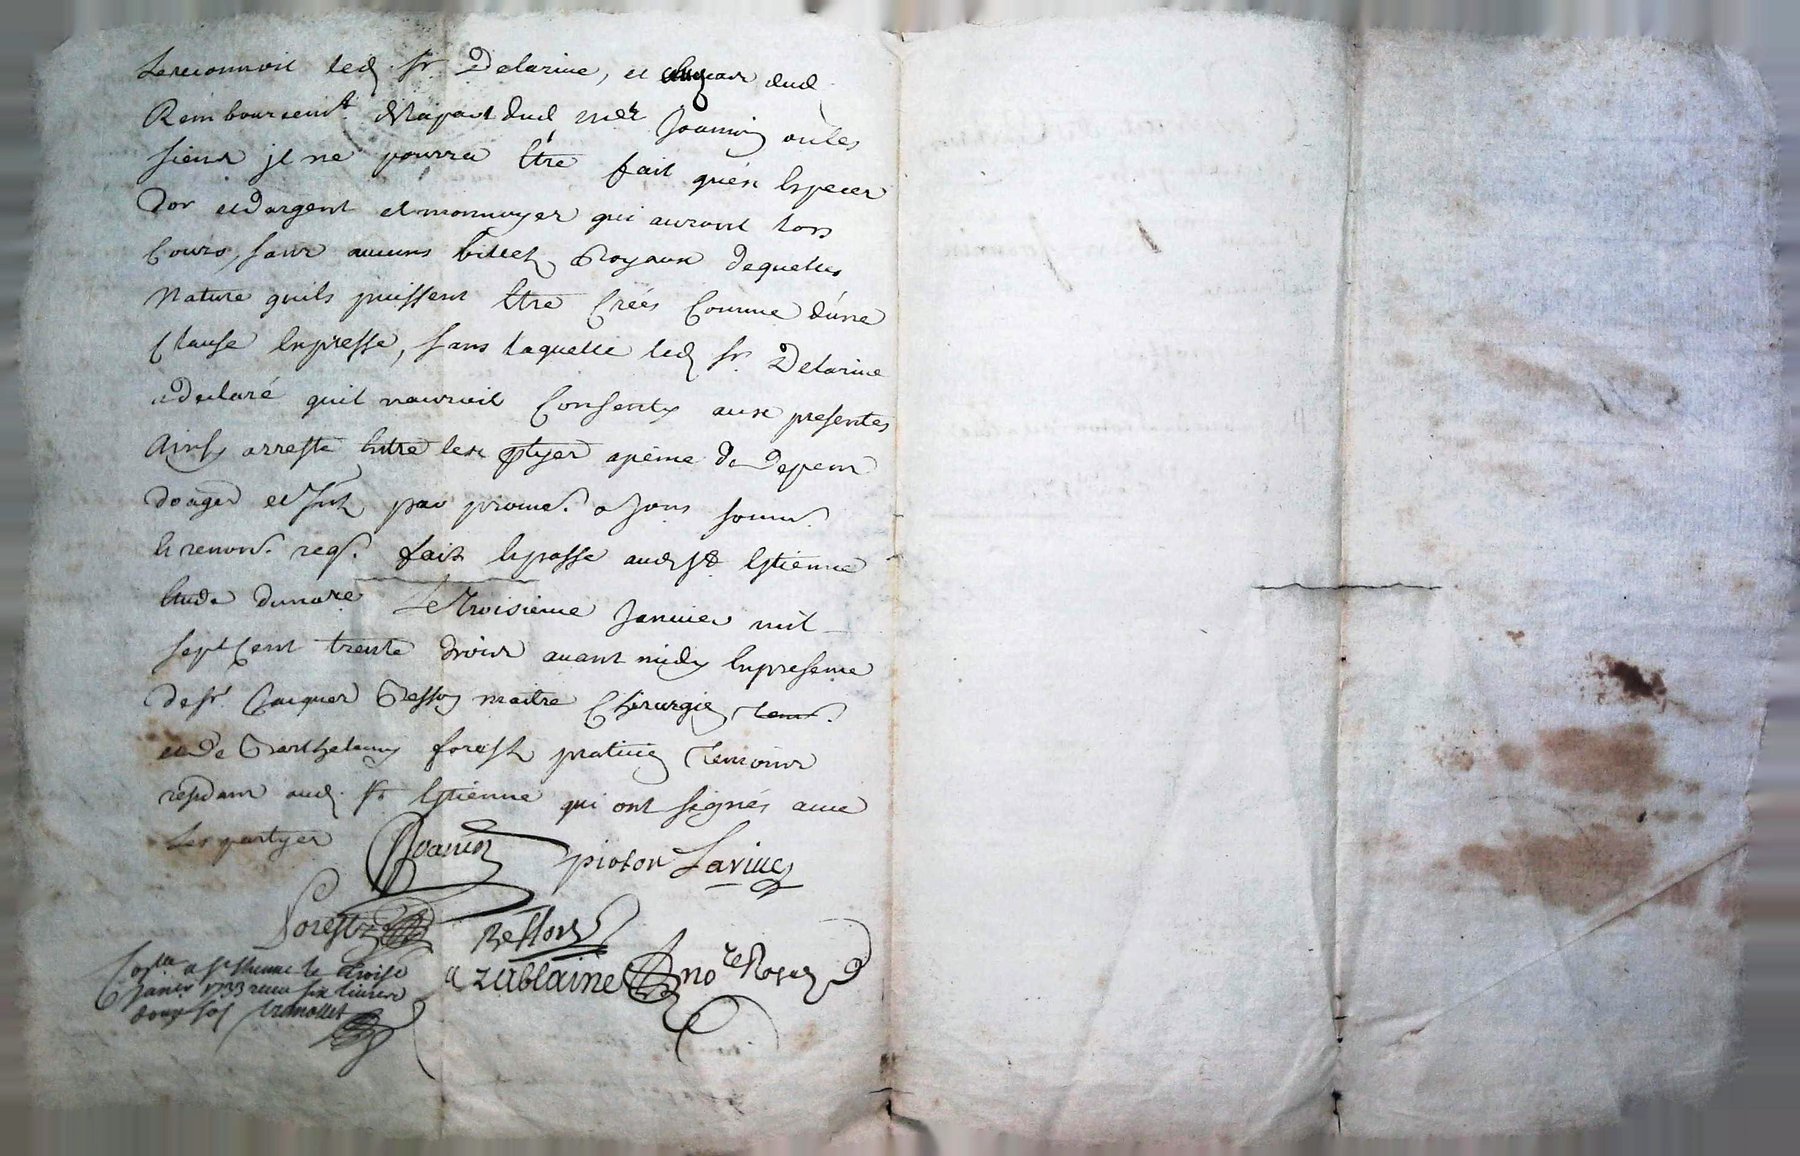 Lereconnoit led. Sr. Delarive, et dud.
Remboursemt. dud. Me. Jouanin ou les
siens jl ne pourra Etre fait qu'en Especes
Dor et dargent et monnoyes qui auront lors
Cours, sans aucuns billets Royaux dequelles
Nature quils puissent Etre Créés Comme d'une
Clause Expresse, sans laquelle led. Sr. Delarive
a declaré quil nauroit Consenty aux presentes
Ainsy arresté Entre les ptyes apeine de Depens
domages et jnts. par promes. soums.
Et renons. reqs. fait Et passé aud. St. Estienne
Etude du nore. Le Troisieme Janvier mil
sept Cent trente Trois avant midy En presence
de Sr. Jacques Besson maitre Chirurgien
et de Barthelemy forest praticien Temoins
residans aud. St. Estienne qui ont signés avec
Les partyes
Jouanin pioton Larive
Forest Besson
azablaine nore Royal
Conllé a St. Etienne le troise
Janvr 1733 receu six livres
douze sols tramollet